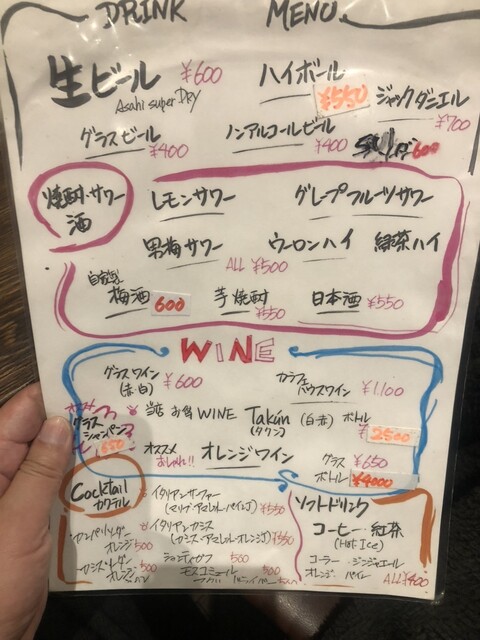 DRINK MENU
生ビール ¥600 ハイボール ¥550 ジャックダニエル ¥700
Asahi super DRY
グラスビール ¥400 ノンアルコールビール ¥400 600
焼酎・サワー 酒
レモンサワー グレープフルーツサワー
男梅サワー ウーロンハイ 緑茶ハイ
ALL ¥500
自家製 梅酒 600 芋焼酎 ¥550 日本酒 ¥550
WINE
グラスワイン (赤・白) ¥600 カラフェ ハウスワイン ¥1,100
オススメ グラス シャンパン 550
当店 WINE Takún (タクン) (白赤) ボトル ¥2500
オススメ おしゃれ!! オレンジワイン グラス ¥650
ボトル ¥4000
Cocktail カクテル
イタリアンサーファー (マリブ・アマレット・パイン) ¥550
イタリアンカシス (カシス・アマレット・オレンジ) ¥550
カンパリ・ソーダ オレンジ 500
カシス・ソーダ オレンジ 500
シャンディガフ 500
モスコミュール 500
ソフトドリンク
コーヒー・紅茶
(Hot Ice)
コーラ ジンジャエール
オレンジ パイン ALL ¥400